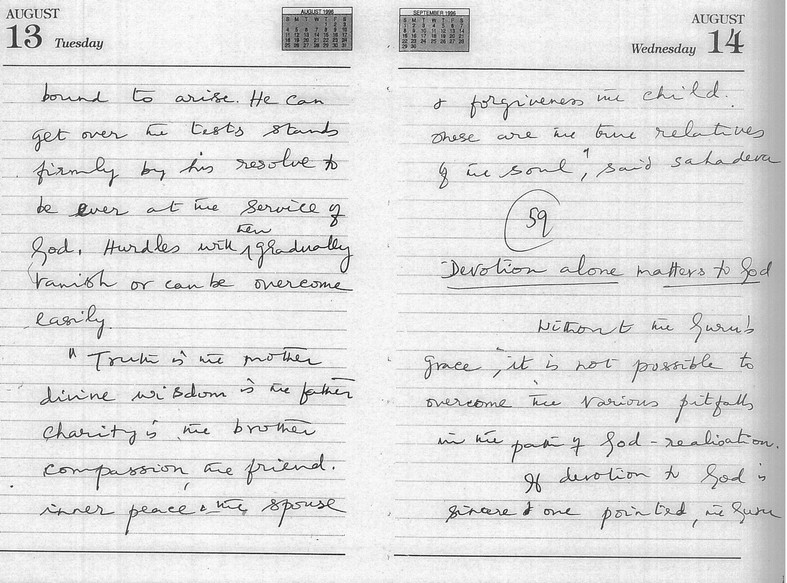 AUGUST
13 Tuesday
AUGUST 1996
bound to arise. He can
get over the tests stands
firmly by his resolve to
be ever at the service of
then
God. Hurdles will gradually
vanish or can be overcome
easily.
" Truth is the mother
divine wisdom is the father
charity is the brother
compassion the friend.
inner peace is the spouse
SEPTEMBER 1996
AUGUST
Wednesday 14
& forgiveness the child.
These are the true relatives
of the soul", said Sahadeva
59
Devotion alone matters to God
Without the Guru's
grace, it is not possible to
overcome the various pitfalls
in the path of God-realisation.
If devotion to God is
sincere & one pointed, the Guru